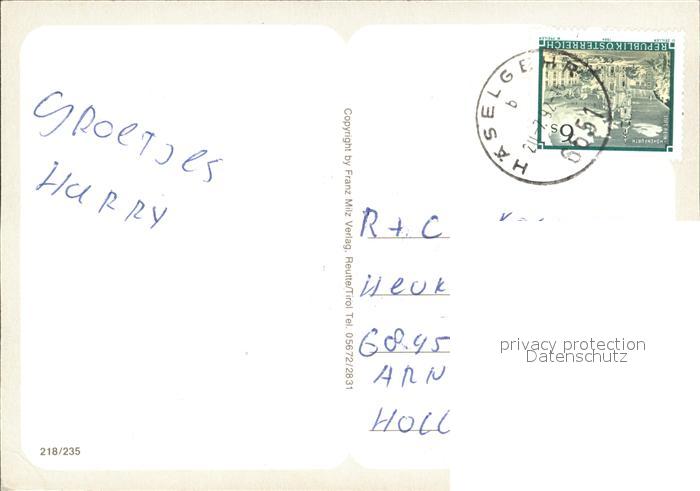 GROETJES
HARRY
218/235
Copyright by Franz Milz Verlag, Reutte/Tirol Tel. 05672/2831
REPUBLIK ÖSTERREICH
6 S
HÄSELGEHR
6651
b
R + C
68.45
ARN
HOLL
privacy protection
Datenschutz